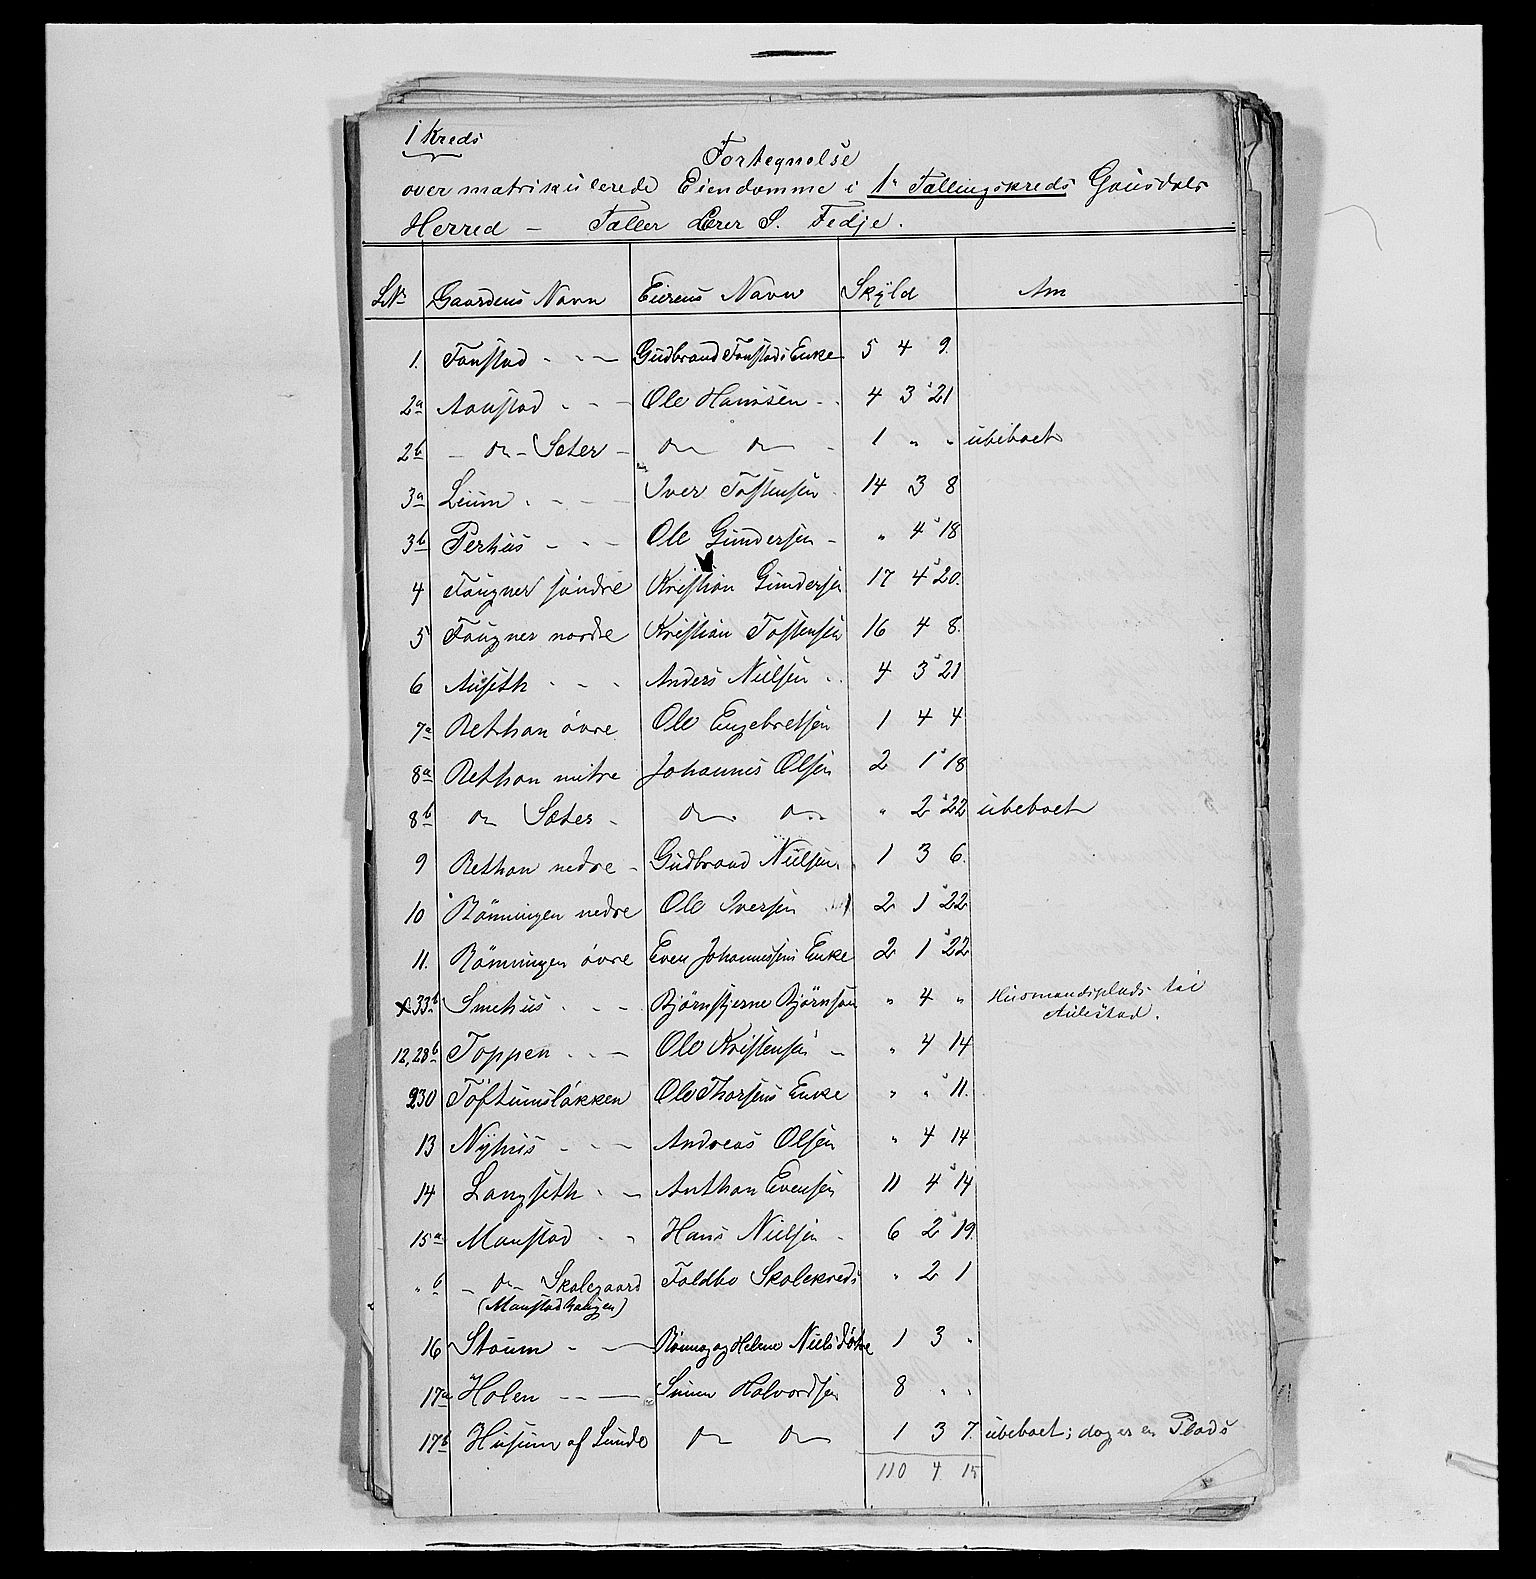 1 Kreds
Fortegnelse
over matrikulerede Eiendomme i 1e Tællingskreds Gausdals
Herred — Tæller Lærer S. Fedje.
LNr Gaardens Navn Eierens Navn Skyld Anm
1. Fonstad - - - Gudbrand Fonstads Enke 5 4 9.
2a Aanstad - - - Ole Hansen - 4 3 21
2b - do - Sæter - do do - 1 " " ubeboet
3a Leium - - - Iver Tostensen 14 3 8
3b Perhus - - - Ole Gundersen - " 4 18
4 Fougner søndre Kristian Gundersen 17 4 20.
5 Fougner nordre Kristian Tostensen 16 4 8.
6 Auseth - - - Anders Nielsen - 4 3 21
7a Rethan övre Ole Engebretsen 1 4 4
8a Rethan mitre Johannes Olsen 2 1 18
8b do Sæter - do do " 2 22 ubeboet
9 Rethan nedre - Gudbrand Nielsen 1 3 6.
10 Rönningen nedre Ole Iversen 2 1 22
11. Rönningen övre Even Johannesens Enke 2 1 22
x 33b Smehus - - - Björnstjerne Björnson " 4 " Husmandsplads til
Aulestad.
12, 28b Toppen - - - Ole Kristensen - " 4 14
230 Toftumsløkken Ole Thorsens Enke " " 11.
13 Nyhus - - - Andreas Olsen " 4 14
14 Langseth - - Anthon Evensen 11 4 14
15a Manstad - - Hans Nielsen - 6 2 19
" b - do - Skolegaard Foldbo Skolekreds " 2 1
(Manstadhaugen)
16 Stoum - - Rönnog og Helene Nielsdøtre 1 3 "
17a Holen - - - Simen Halvordsen 8 " "
17b Husum af Lunde do do 1 3 7. ubeboet; dog er en Plads
110 4 15